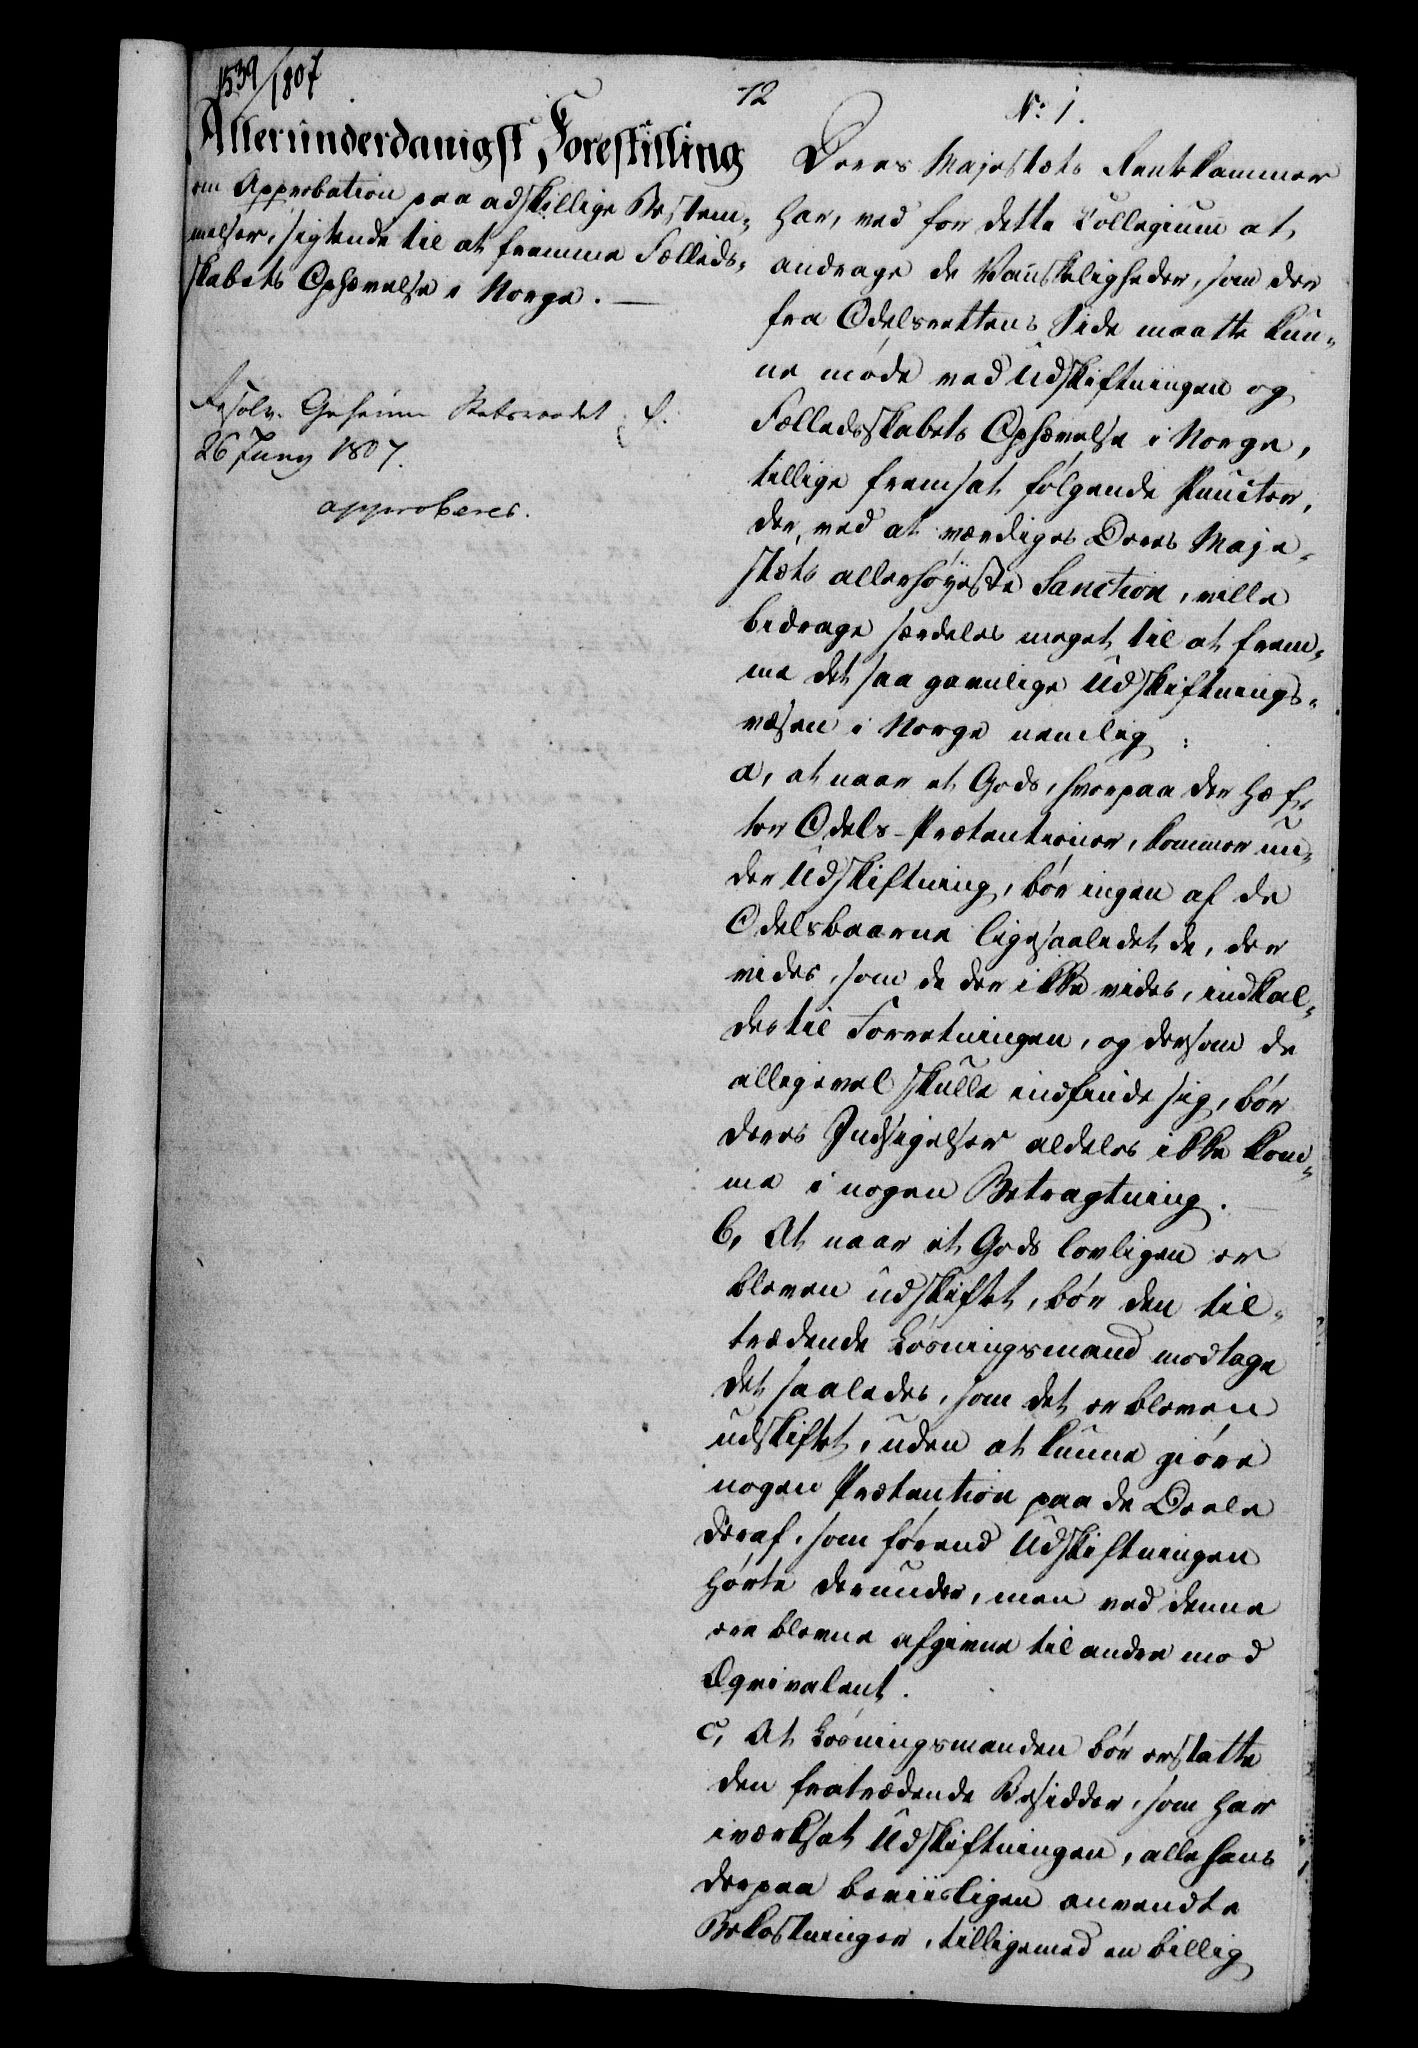 1539/1807
12
No: 1.
Allerunderdanigst Forestilling
om Approbation paa adskillige Bestem-
melser, sigtende til at fremme Fælleds-
skabets Ophævelse i Norge. —
Resolv. Geheime Statsraadet
26 Juny 1807.
approberes.
Deres Majestæts Rentekammer
har, ved for dette Collegium at
andrage de Vanskeligheder, som der
fra Odelsrettens Side maatte kun-
ne møde ved Udskiftningen og
Fælledsskabets Ophævelse i Norge,
tillige fremsat følgende Puncter,
der, ved at værdiges Deres Maje-
stæts allerhøyeste Sanction, ville
bidrage særdeles meget til at frem-
me det saa gavnlige Udskiftnings-
væsen i Norge nemlig:
a, at naar et Gods, hvorpaa der hæf-
ter Odels-Prætentioner, kommer un-
der Udskiftning, bør ingen af de
Odelsbaarne ligesaaledet de, der
vides, som de der ikke vides, indkal-
des til Forretningen, og dersom de
alligevel skulle indfinde sig, bør
deres Indsigelser aldeles ikke kom-
me i nogen Betragtning.
b, At naar et Gods lovligen er
bleven udskiftet, bør den til-
trædende Løsningsmand modtage
det saaledes, som det er bleven
udskiftet, uden at kunne giøre
nogen Prætention paa de Deele
deraf, som førend Udskiftningen
hørte derunder, men ved denne
ere blevne afgivne til andre mod
Æqvivalent.
c, At Løsningsmanden bør erstatte
den fratrædende Besidder, som har
iværksat Udskiftningen, alle hans
derpaa beviisligen anvendte
Bekostninger, tilligemed en billig